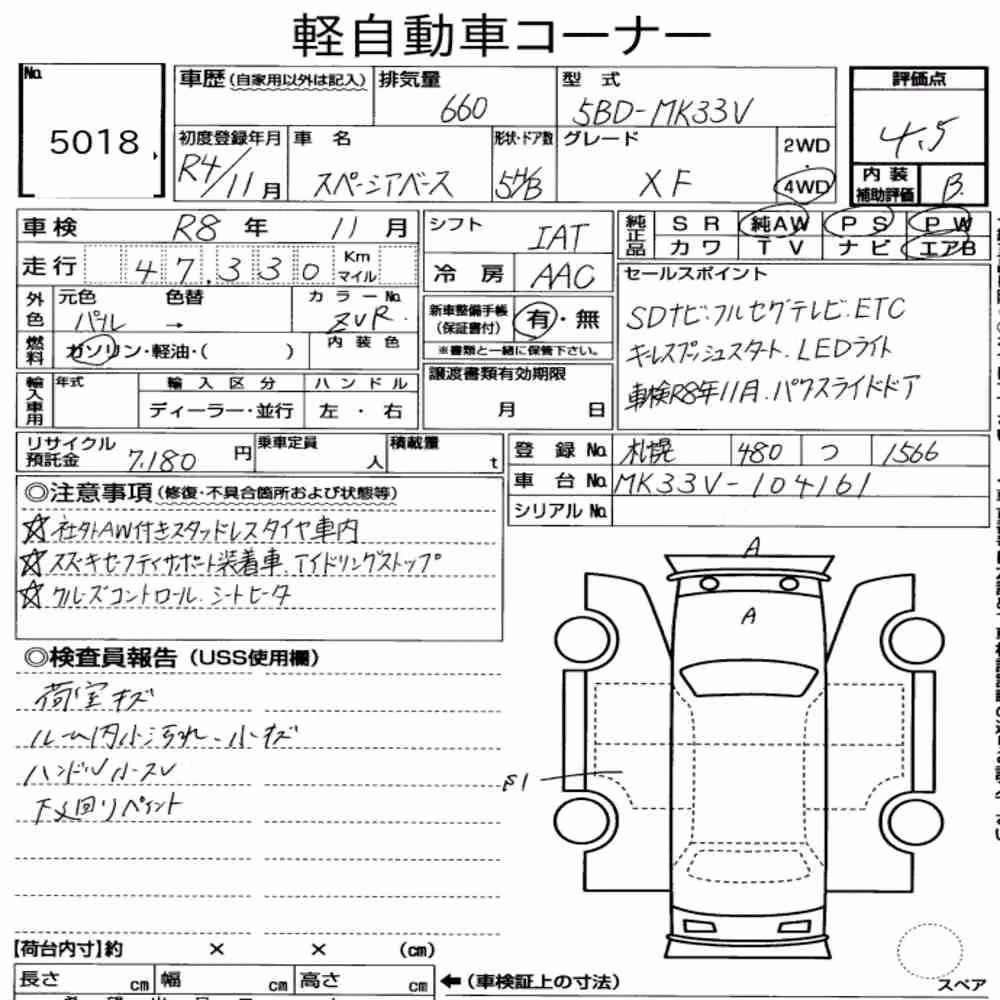 軽自動車コーナー
No. 5018
車歴(自家用以外は記入) 排気量 660 型式 5BD-MK33V
初度登録年月 R4/11月 車名 スペーシアベース 形状・ドア数 5/B グレード XF 2WD・4WD
評価点 4.5
内装補助評価 B
車検 R8年 11月
走行 47,330 Km マイル
外色 元色 パール 色替 → カラーNo. ZVR
燃料 ガソリン・軽油・( ) 内装色
輸入車用 年式 輸入区分 ディーラー・並行 ハンドル 左・右
シフト IAT
冷房 AAC
新車整備手帳(保証書付) 有・無
※書類と一緒に保管下さい。
譲渡書類有効期限 月 日
純正品 SR 純AW PS PW
カワ TV ナビ エアB
セールスポイント
SDナビ.フルセグテレビ.ETC
キーレスプッシュスタート.LEDライト
車検R8年11月.パワスライドドア
リサイクル預託金 7,180円 乗車定員 人 積載量 t
登録No. 札幌 480 つ 1566
車台No. MK33V-104161
シリアルNo.
◎注意事項(修復・不具合箇所および状態等)
☆社外AW付きスタッドレスタイヤ車内
☆スズキセーフティサポート装着車.アイドリングストップ
☆クルーズコントロール.シートヒータ
◎検査員報告(USS使用欄)
荷室キズ
ルーム内小汚れ、小キズ
ハンドル小スレ
下廻リペイント
A
A
S1
【荷台内寸】約 × × (cm)
長さ cm 幅 cm 高さ cm
←(車検証上の寸法)
スペア